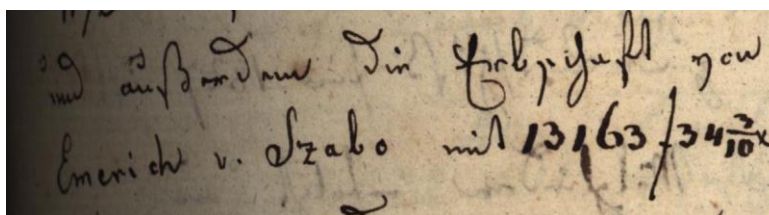 und außerdem die Erbschaft von
Emerich v. Szabo mit 13163 f 34 3/10 x